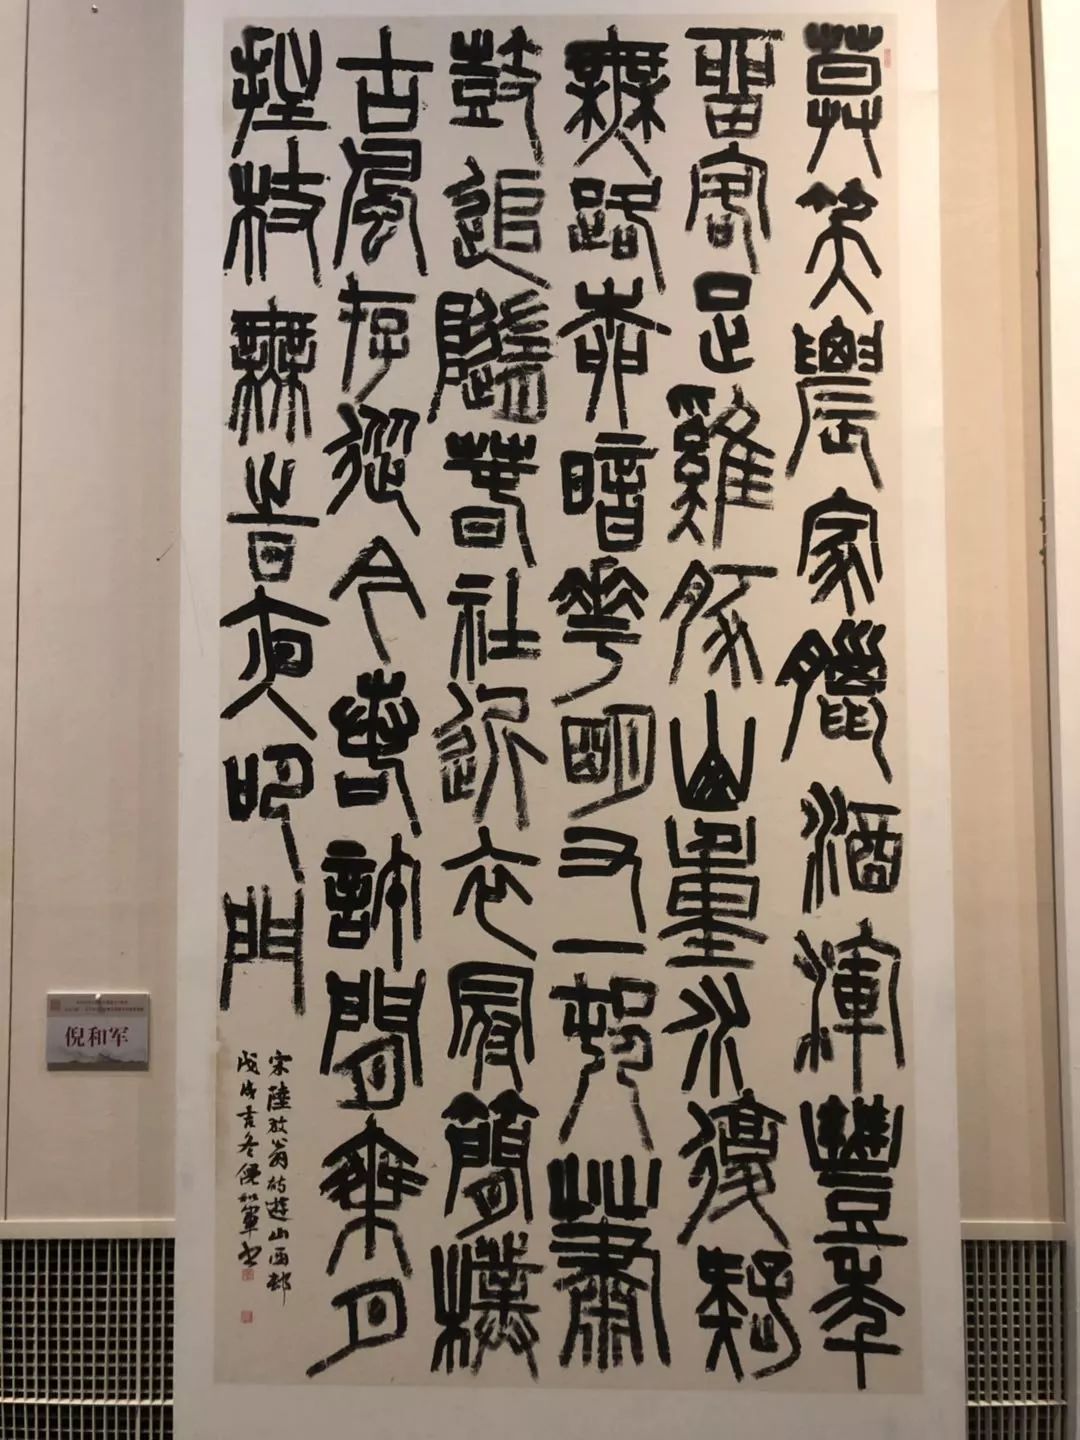 莫笑農家臘酒渾豐年
留客足雞豚山重水複疑
無路柳暗華明又一邨蕭
鼓追隨春社近衣冠簡樸
古風存從今若許閒乘月
拄杖無時夜叩門
宋陸放翁詩遊山西邨
戊戌吉冬倪和軍書
倪和军